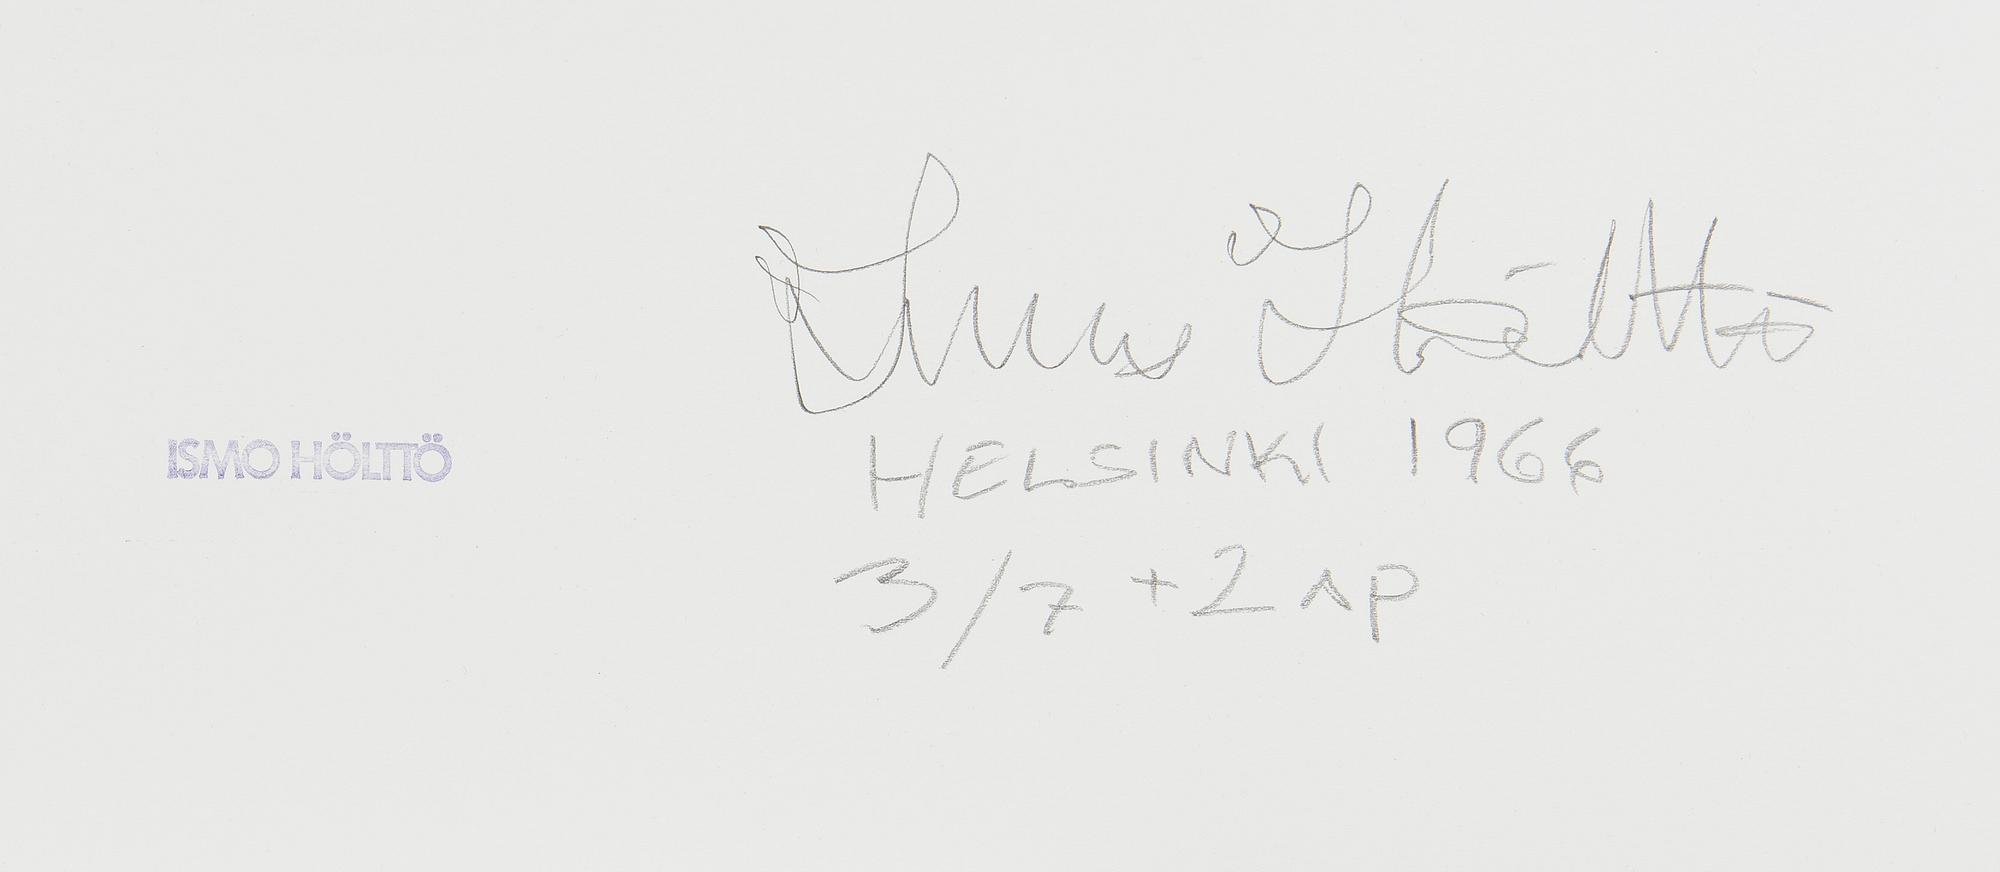 Ismo Hölttö
ISMO HÖLTTÖ
HELSINKI 1966
3/7 +2 AP